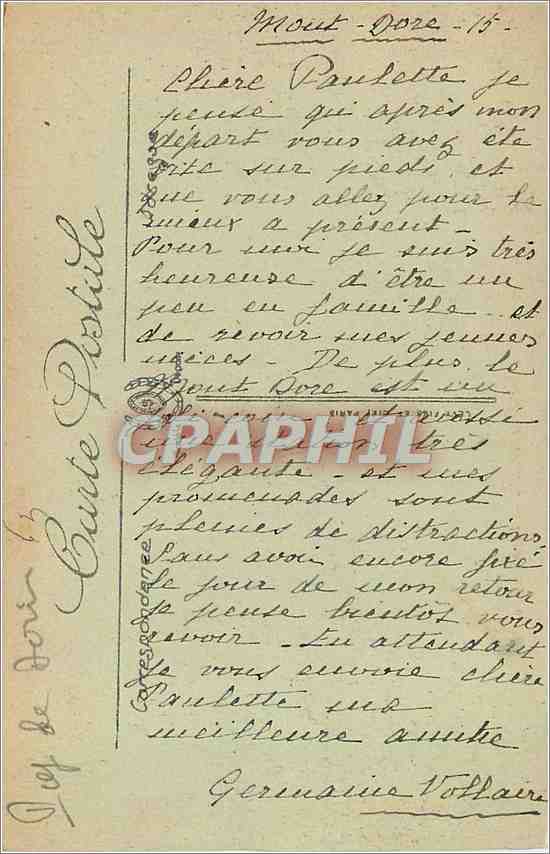 Mont-Dore - 15 -
Chère Paulette je
pense qui après mon
départ vous avez été
vite sur pieds, et
que vous allez pour le
mieux a présent -
Pour moi je suis très
heureuse d'être un
peu en famille et
de revoir mes jeunes
nièces - De plus, le
Mont Dore est un
joli coin et aussi
une station très
élégante - et mes
promenades sont
pleines de distractions
Sans avoir encore fixé
le jour de mon retour
je pense bientôt vous
revoir - En attendant
je vous envoie chère
Paulette ma
meilleure amitié
Germaine Voltaire
Carte Postale
Correspondance
Adresse
Puy de
PARIS
CPAPHIL